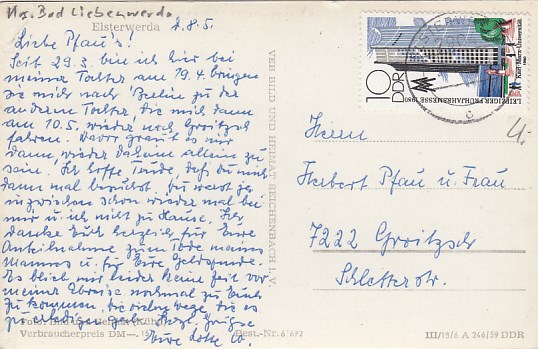 Krs. Bad Liebenwerda
Elsterwerda
2.8.5
Liebe Pfau's!
Seit 29.3. bin ich hier bei
meiner Tochter am 19.4. bringen
sie mich nach Berlin zu der
anderen Tochter, die mich dann
am 10.5. wieder nach Groitzsch
fahren. Davor graut es mir
dann, wieder daheim allein zu
sein. Ich hoffe, Trude, daß du mich
dann mal besuchst. Du warst ja
inzwischen schon wieder mal bei
mir u. ich nicht zu Hause. Ich
danke Euch herzlich für Eure
Anteilnahme zum Tode meines
Mannes u. für Eure Geldspende.
Es blieb mir leider keine Zeit vor
meiner Abreise nochmal zu Euch
zu kommen, die vielen Wege, die es
zu erledigen gab. Herzl. Grüße
Eure Lotte
Verbraucherpreis DM —.15
Best.-Nr. 6/692
VEB BILD UND HEIMAT REICHENBACH I. V.
10
DDR
LEIPZIGER FRÜHJAHRSMESSE 1980
Karl-Marx-Universität
ELSTERWERDA
c
Herrn
Herbert Pfau u. Frau
7222 Groitzsch
Schletterstr.
III/18/6 A 246/59 DDR